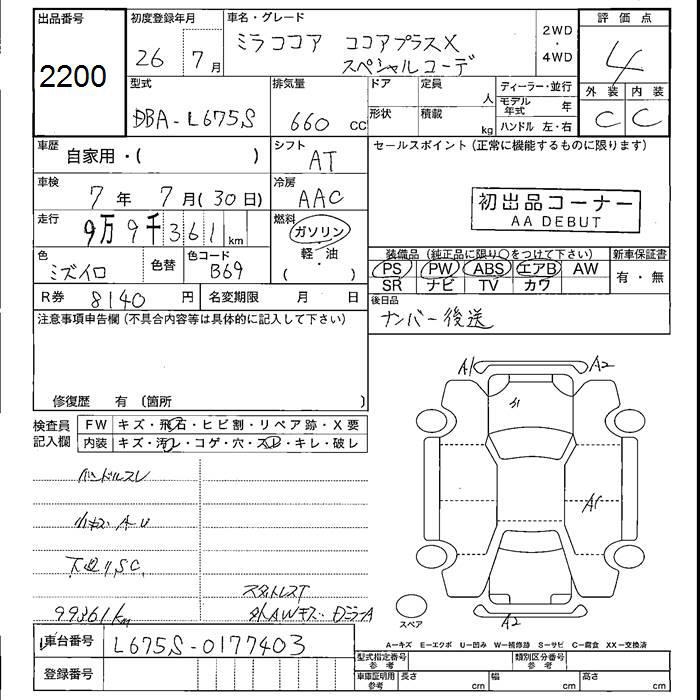 出品番号
2200
初度登録年月
26 年 7 月
車名・グレード
ミラココア ココアプラスX
スペシャルコーデ
2WD
・
4WD
評価点
4
外装 内装
C C
型式
DBA-L675S
排気量
660 cc
ドア
形状
定員
人
積載
kg
ディーラー・並行
モデル年式 年
ハンドル 左・右
車歴
自家用・( )
シフト
AT
セールスポイント(正常に機能するものに限ります)
車検
7 年 7 月(30日)
冷房
AAC
初出品コーナー
AA DEBUT
走行
9万9千361km
燃料
ガソリン
・
軽・油
( )
色
ミズイロ
色替
色コード
B69
装備品(純正品に限り○をつけて下さい)
新車保証書
PS PW ABS エアB AW
SR ナビ TV カワ
有・無
R券 8140 円
名変期限 月 日
後日品
ナンバー後送
注意事項申告欄(不具合内容等は具体的に記入して下さい)
修復歴 有〔箇所 〕
検査員
記入欄
FW キズ・飛石・ヒビ割・リペア跡・X要
内装 キズ・汚レ・コゲ・穴・スレ・キレ・破レ
ハンドルスレ
小キズ A・U
下廻リS.C.
99361km
スタットレスT
外AWキズ DミラーA
A1
A2
A1
A2
スペア
A=キズ E=エクボ U=凹み W=補修跡 S=サビ C=腐食 XX=交換済
車台番号 L675S-0177403
登録番号
型式指定番号
参考
類別区分番号
参考
車庫証明用
参考
長さ cm
幅 cm
高さ cm